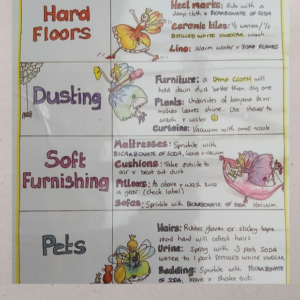 Hard Floors
Heel marks: Rub with a
damp cloth & BICARBONATE OF SODA
Ceramic tiles: 1/2 water/1/2
DISTILLED WHITE VINEGAR wash
Lino: Warm water & SOAP FLAKES
Dusting
Furniture: a DAMP CLOTH will
hold down dust better than dry one
Plants: Undersides of banana skins
makes leaves shine. Use shower to
wash & water
Curtains: Vacuum with small nozzle
Soft Furnishing
Mattresses: Sprinkle with
BICARBONATE OF SODA, leave & vacuum
Cushions: Take outside to
air & beat out dust
Pillows: As above & wash twice
a year (check label)
Sofas: Sprinkle with BICARBONATE OF SODA Vacuum
Pets
Hairs: Rubber gloves or sticky tape
round hand will collect hairs
Urine: Spray with 3 parts SODA
WATER to 1 part DISTILLED WHITE VINEGAR
Bedding: Sprinkle with BICARBONATE
OF SODA, leave & shake out.